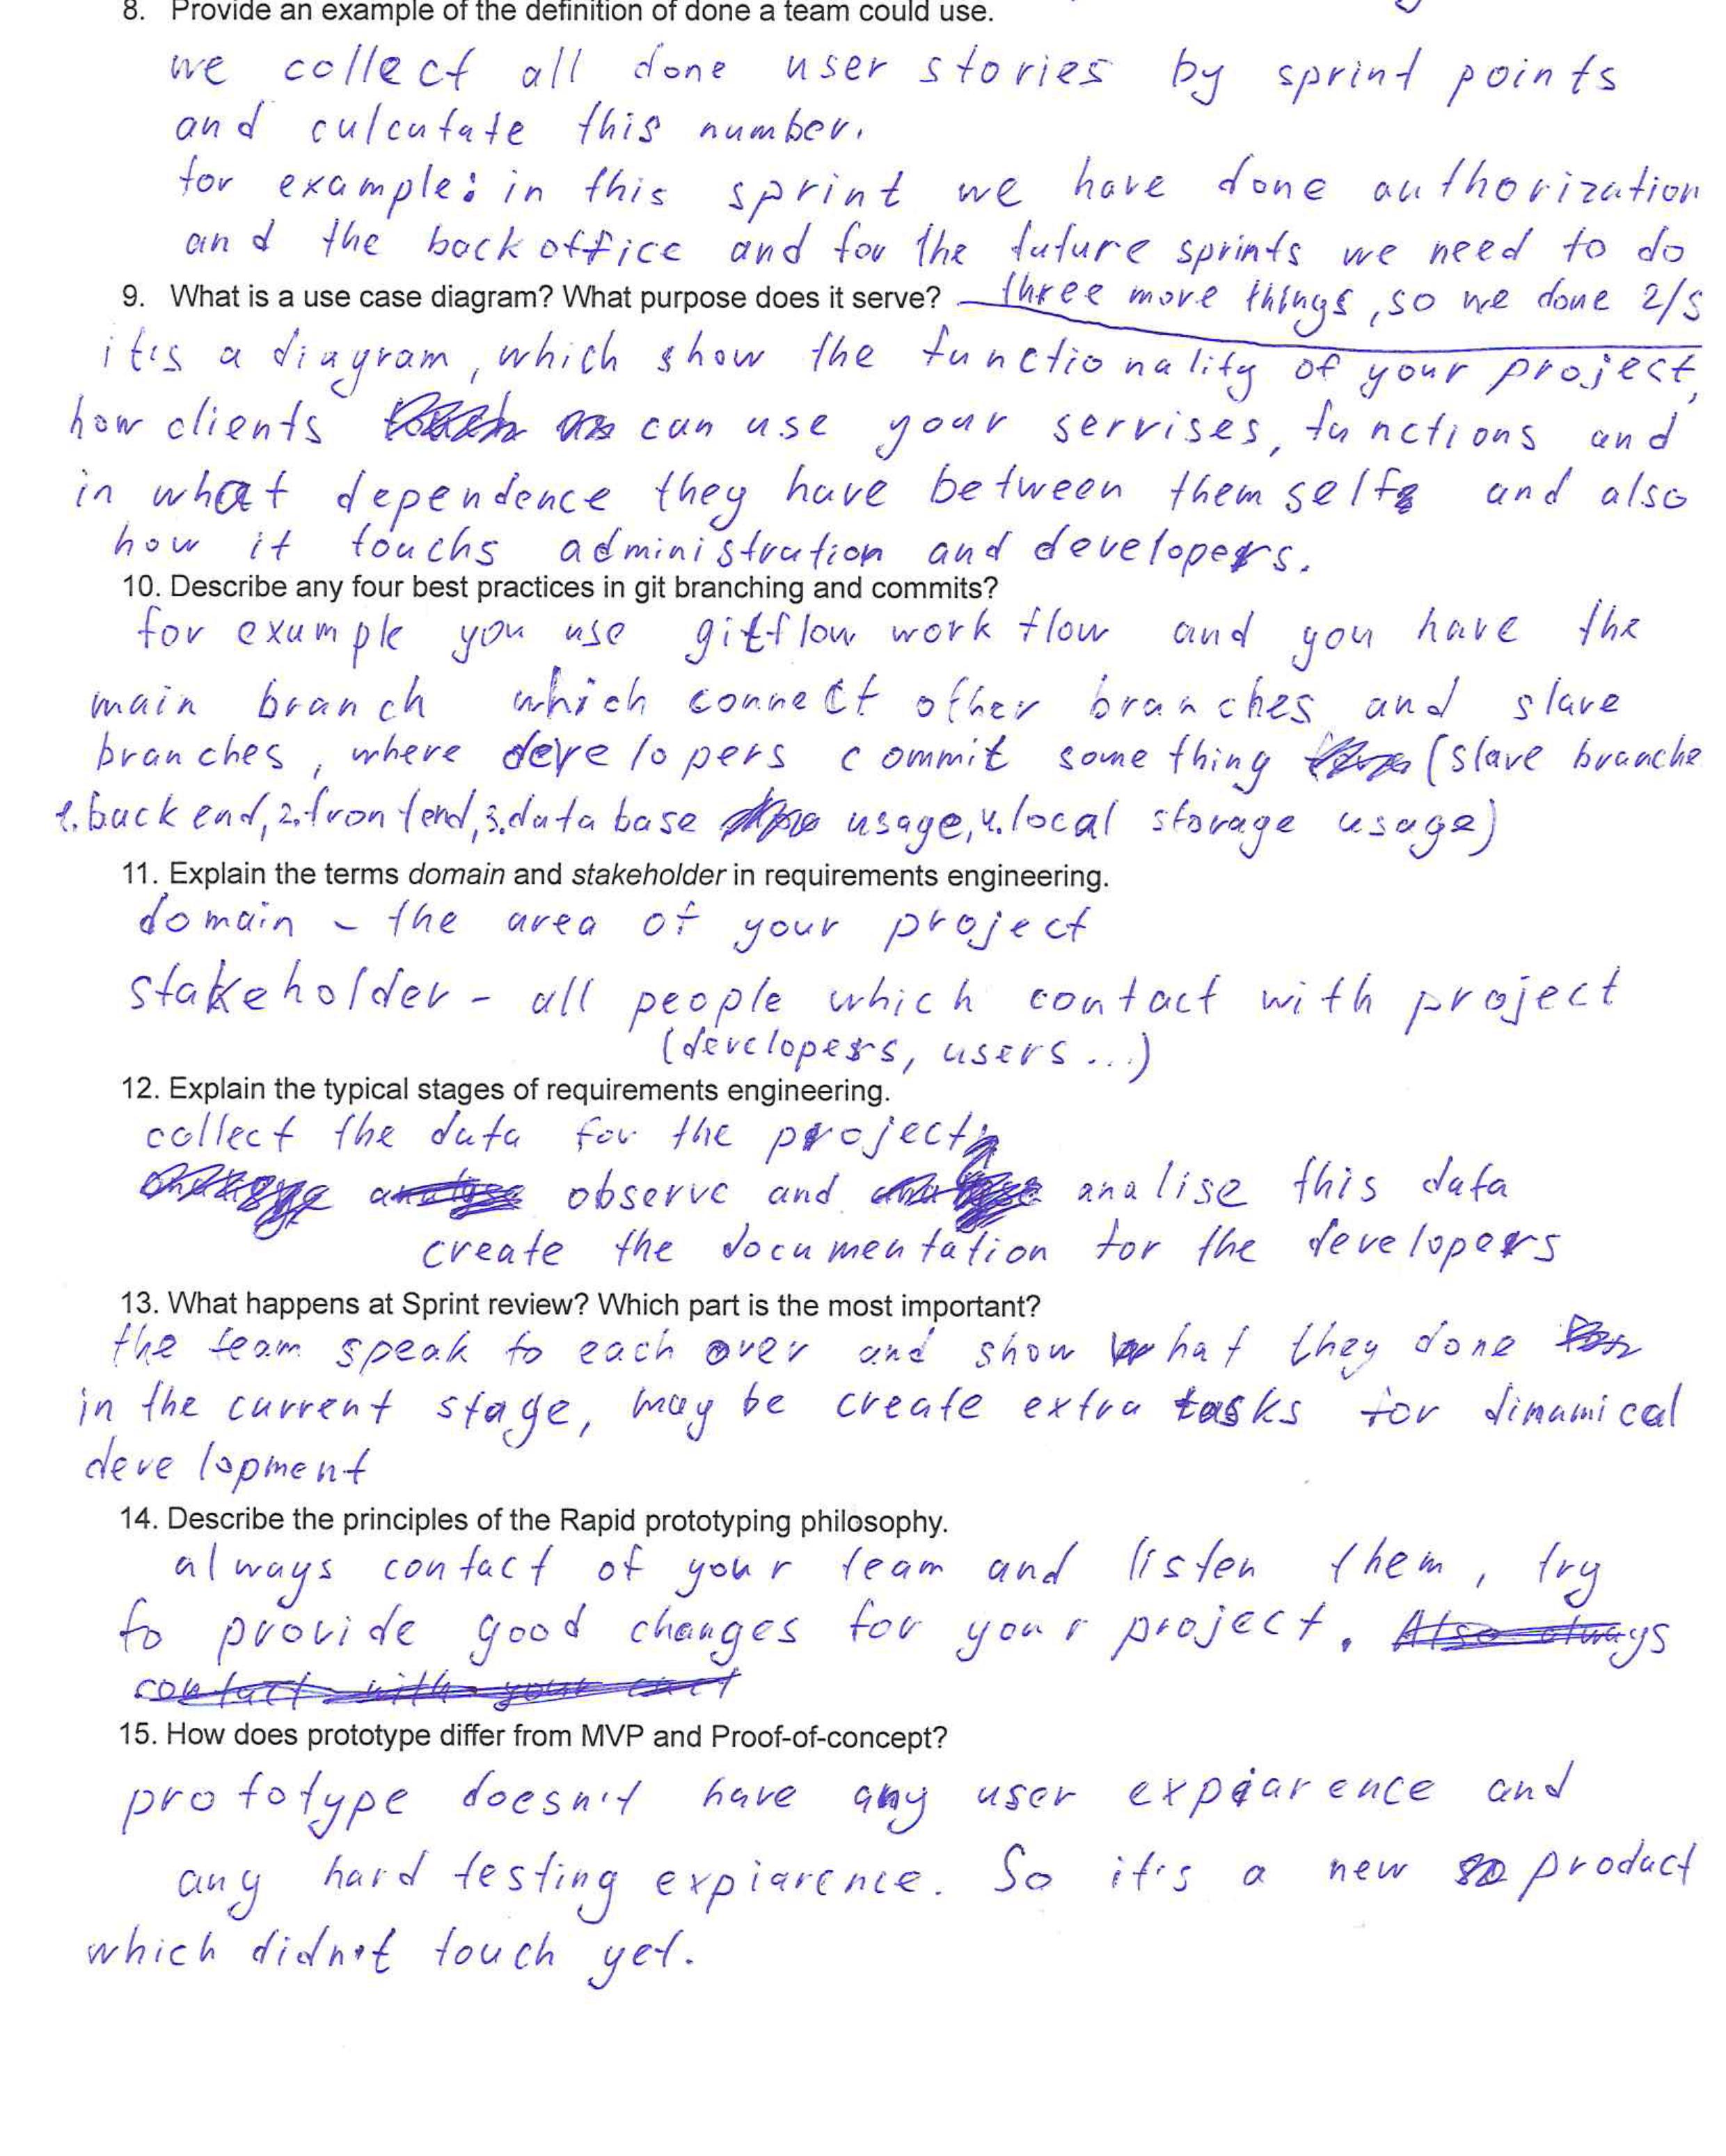 8. Provide an example of the definition of done a team could use.
we collect all done user stories by sprint points
and culcutate this number.
for example: in this sprint we have done authorization
and the backoffice and for the future sprints we need to do
9. What is a use case diagram? What purpose does it serve?
three more things, so we done 2/5
it's a diagram, which show the functionality of your project,
how clients can use your servises, functions and
in what dependence they have between themselfs and also
how it touchs administration and developers.
10. Describe any four best practices in git branching and commits?
for example you use gitflow workflow and you have the
main branch which connect other branches and slave
branches, where developers commit something (slave branche
1. backend, 2. frontend, 3. database usage, 4. local storage usage)
11. Explain the terms domain and stakeholder in requirements engineering.
domain - the area of your project
stakeholder - all people which contact with project
(developers, users...)
12. Explain the typical stages of requirements engineering.
collect the data for the project
observe and analise this data
create the documentation for the developers
13. What happens at Sprint review? Which part is the most important?
the team speak to each over and show what they done
in the current stage, may be create extra tasks for dinamical
development
14. Describe the principles of the Rapid prototyping philosophy.
always contact of your team and listen them, try
to provide good changes for your project. Also always
contact with your
15. How does prototype differ from MVP and Proof-of-concept?
prototype doesn't have any user expiarence and
any hard testing expiarence. So it's a new product
which didn't touch yet.